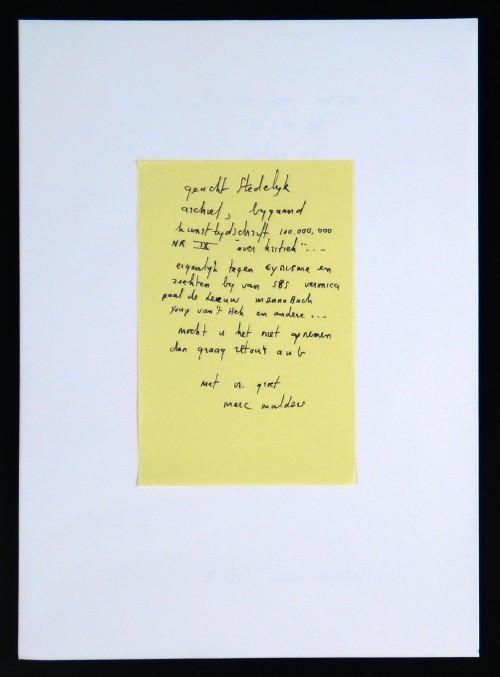 geacht Stedelijk
archief, bijgaand
kunsttijdschrift 100.000.000
NR IX "over kritiek"...
eigenlijk tegen cynisme en
ziekten bij van SBS veronica
paul de leeuw menno Buch
Youp van 't Hek en andere ...
mocht u het niet opnemen
dan graag retour a u b
met vr. groet
marc mulders